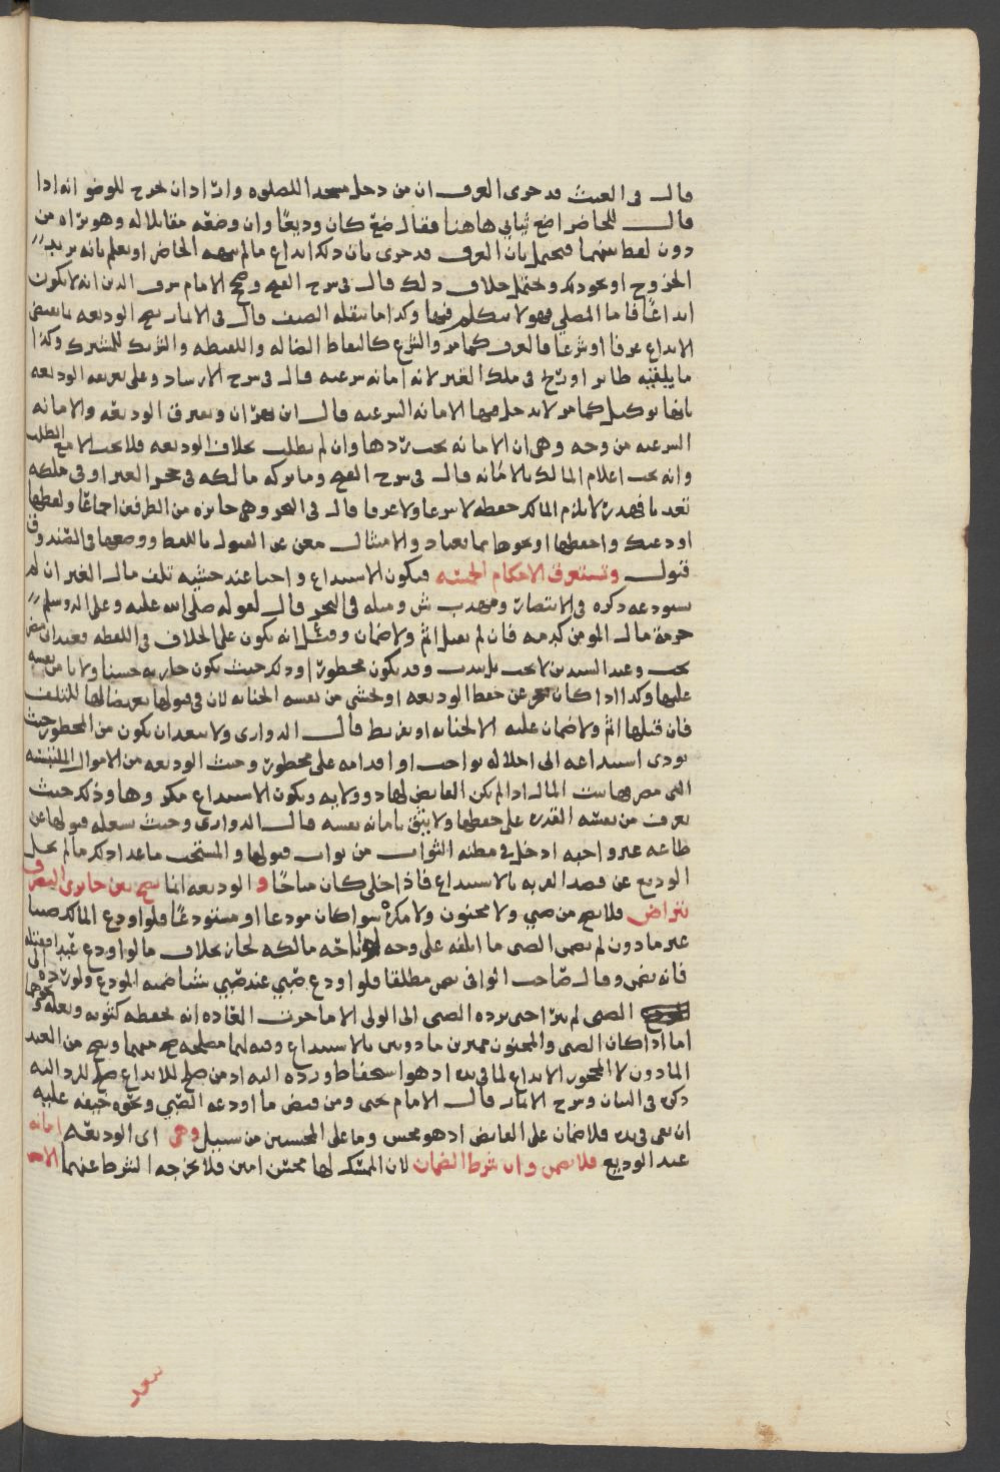 قال في الغيث قد جرى العرف ان من دخل مسجدا للصلوه واراد ان يخرج للوضو انه اذا
قال للحاضر اضع ثيابي هاهنا فقال ضع كان وديعًا وان وضعه مقابلا له وهو يراه من
دون لفظ بينهما فيحتمل بان العرف قد جرى بان ذلك ايداع مالم الحاضر او يعلم بانه يريد
الخروج او نحو ذلك ويحتمل خلاف ذلك قال في شرح الفتح وصحح الامام شرف الدين انه لا يكون
ايداعًا فاما المصلي فهو لا يتكلم فيها وكذا ما ينقله الصيف قال في الاثمار تصح الوديعه بما يقتضي
الايداع عرفا او شرعا فالعرف كما مر والشرع كالتقاط الضاله واللقيطه والشريك للمشترك وكذا
ما يلقيه طاير او ريح في ملك الغير لانه امانه شرعيه قال في شرح الارشاد وعلى تعريف الوديعه
بانها توكيل كما مر لا يدخل فيها الامانه الشرعيه قال ابن بهران ويفترق الوديعه والامانه
الشرعيه من وجه وهي ان الامانه يجب ردها وان لم يطلب بخلاف الوديعه فلا يجب الا مع الطلب
وانه يجب اعلام المالك بالامانه قال في شرح الفتح وما تركه مالكه في حجر الغير او في ملكه
تعديا فهدر لا يلزم المالك حفظه لا شرعا ولا عرفا قال في البحر وهي جايزه من الطرفين اجماعًا ولفظها
اودعتك واحفظها او نحوها مما يعتاد والامتثال مغن عن القبول باللفظ ووضعها في الصندوق
قبول وتستعرق الاحكام الخمسه فيكون الاستيداع واجبا عند خشيه تلف مال الغير ان لم
يستودعه ذكره في الانتصار ومهذب ش ومثله في البحر قال لقوله صلى الله عليه وعلى اله وسلم
حرمة مال المومن كدمه فان لم يفعل اثم ولا ضمان وقيل انه يكون على الخلاف في اللقطه فعند ابي مضر
يجب وعند السيدين لا يجب بل يندب وقد يكون محظورا وذلك حيث يكون جاريه حسنا ولا يامن نفسه
عليها وكذا اذا كان عجز عن حفظ الوديعه او خشي من نفسه الخيانه لان في قبولها تعريضا لها للتلف
فان قبلها اثم ولا ضمان عليه الا لخيانه او تفريط قال الدواري ولا يبعد ان يكون من المحظور حيث
يودي استيداعه الى اخلاله بواجب او اقدامه على محظور وحيث الوديعه من الاموال الملتبسه
التي مصرفها بيت المال اذا لم يكن القابض لها ذو ولايه ويكون الاستيداع مكروها وذلك حيث
يعرف من نفسه القدره على حفظها ولا يثق بامانه نفسه قال الدواري وحيث يشغله قبولها عن
طاعه غير واجبه ادخل في مظنه الثواب من ثواب قبولها والمستحب ماعدا ذلك مالم يخل
الوديع عن قصد القربه بالاستيداع فاذا خلى كان مباحًا و الوديعه انما تصح بين جايزي التصرف
بتراض فلا تصح من صبي ولا مجنون ولا مكره سوا كان مودعا او مستودعًا فلو اودع المالك صبيا
غير ماذون لم يضمن الصبي ما اتلفه على وجه لو اباحه مالكه لجاز بخلاف ما لو اودع عبدا فقتله
فانه يضمن وقال صاحب الوافي يضمن مطلقا فلو اودع صبي عند صبي شيئا ضمنه المودع ولو رده الى
الصبي لم يبرا حتى يرده الصبي الى الولي الا ما جرت العاده انه يحفظه كثوبه ونعله ونحوهما
اما اذا كان الصبي والمجنون مميزين ماذونين بالاستيداع وفيه لهما مصلحه صح منهما ويصح من العبد
الماذون لا المحجور الايداع لما في يده اذ هو استحفاظ ورده اليه اذ من صلح للايداع صلح للرد اليه
ذكره في البيان وشرح الاثمار قال الامام يحيى ومن قبض ما اودعه الصبي ونحوه خيفه عليه
ان بقي في يده فلا ضمان على القابض اذ هو محسن وما على المحسنين من سبيل وهي اي الوديعه امانه
عند الوديع فلا يضمن وان شرط الضمان لان الممسك لها محسن امين فلا يخرجه الشرط عنهما الا
سعد